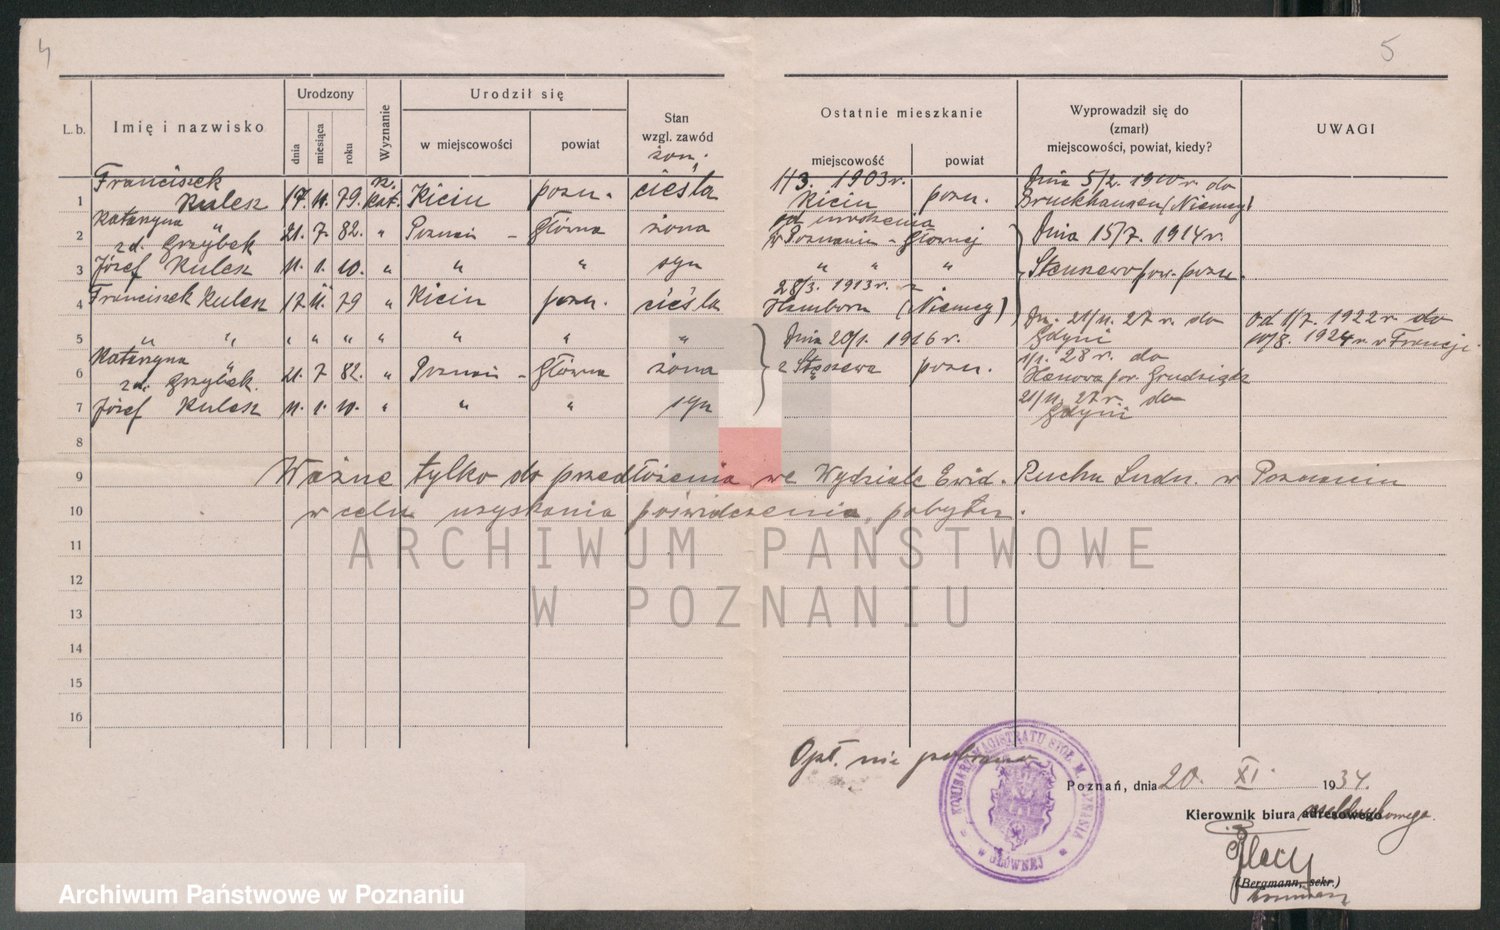 4
5
L. b.
Imię i nazwisko
Urodzony
dnia
miesiąca
roku
Wyznanie
Urodził się
w miejscowości
powiat
Stan
wzgl. zawód
żon.
Ostatnie mieszkanie
miejscowość
powiat
Wyprowadził się do
(zmarł)
miejscowości, powiat, kiedy?
UWAGI
Franciszek 1/3. 1903 r. Dnia 5/2. 1910 r. do
1 Kulesz 17. 11. 79. r. kat. Kicin pozn. cieśla Kicin pozn. Bruckhausen (Niemcy)
Katarzyna od urodzenia
2 zd. Grzybek 21. 7. 82. " Poznań - Główna żona w Poznaniu - Głównej Dnia 15/7. 1914 r.
3 Józef Kulesz 11. 1. 10. " " " syn " " " Stęszewo pow. pozn.
28/3. 1913 r. z
4 Franciszek Kulesz 17 11. 79 " Kicin pozn. cieśla Hamborn (Niemcy)
Dn. 21/11. 27 r. do Od 1/7. 1922 r. do
5 " " " " " " " " " Dnia 20/1. 1916 r. Gdyni 10/8. 1924 r. w Francji.
Katarzyna 1/1. 28 r. do
6 zd. Grzybek. 21. 7 82. " Poznań - Główna żona z Stęszewa pozn. Hanowa pow. Grudziądz
21/11. 27 r. do
7 Józef Kulesz 11. 1. 10. " " " syn Gdyni
8
9 Ważne tylko do przedłożenia we Wydziale Ewid. Ruchu Ludn. w Poznaniu
10 w celu uzyskania poświadczenia pobytu.
11
12
13
14
15
16
ARCHIWUM PAŃSTWOWE
W POZNANIU
Opł. nie pobrano
KOMISARZ MAGISTRATU STOŁ. M. POZNANIA
W GŁÓWNEJ
Poznań, dnia 20. XI. 1934.
Kierownik biura adresowego meldunkowego.
(Bergmann, sekr.)
Archiwum Państwowe w Poznaniu